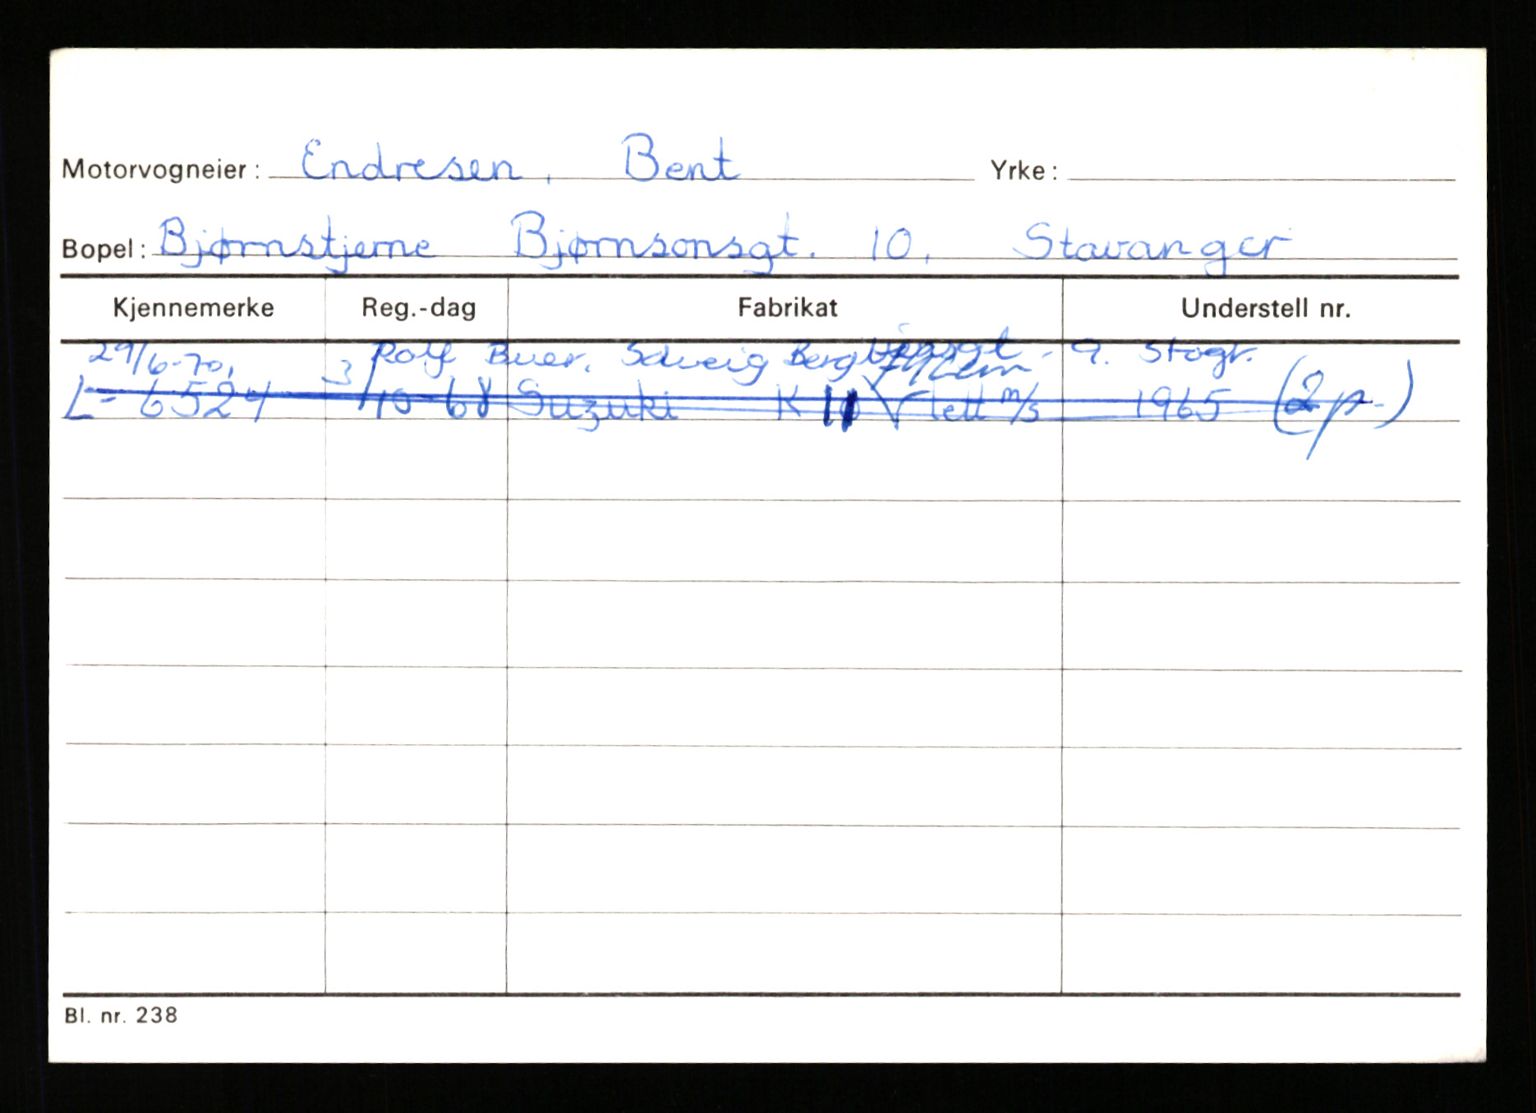 Motorvogneier: Endresen, Bent Yrke:
Bopel: Bjørnstjerne Bjørnsonsgt. 10, Stavanger
Kjennemerke Reg.-dag Fabrikat Understell nr.
29/6-70, Rolf Buer, Solveig Bergs 9. Stvgr.
L-6524 3/10-68 Suzuki K 11 lett m/s 1965 (2 p.)
Bl. nr. 238